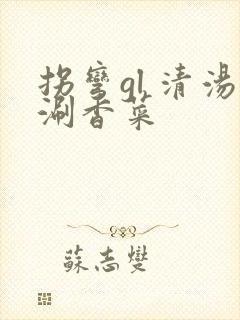 拐彎gl 清湯
涮香菜
蘇志燮